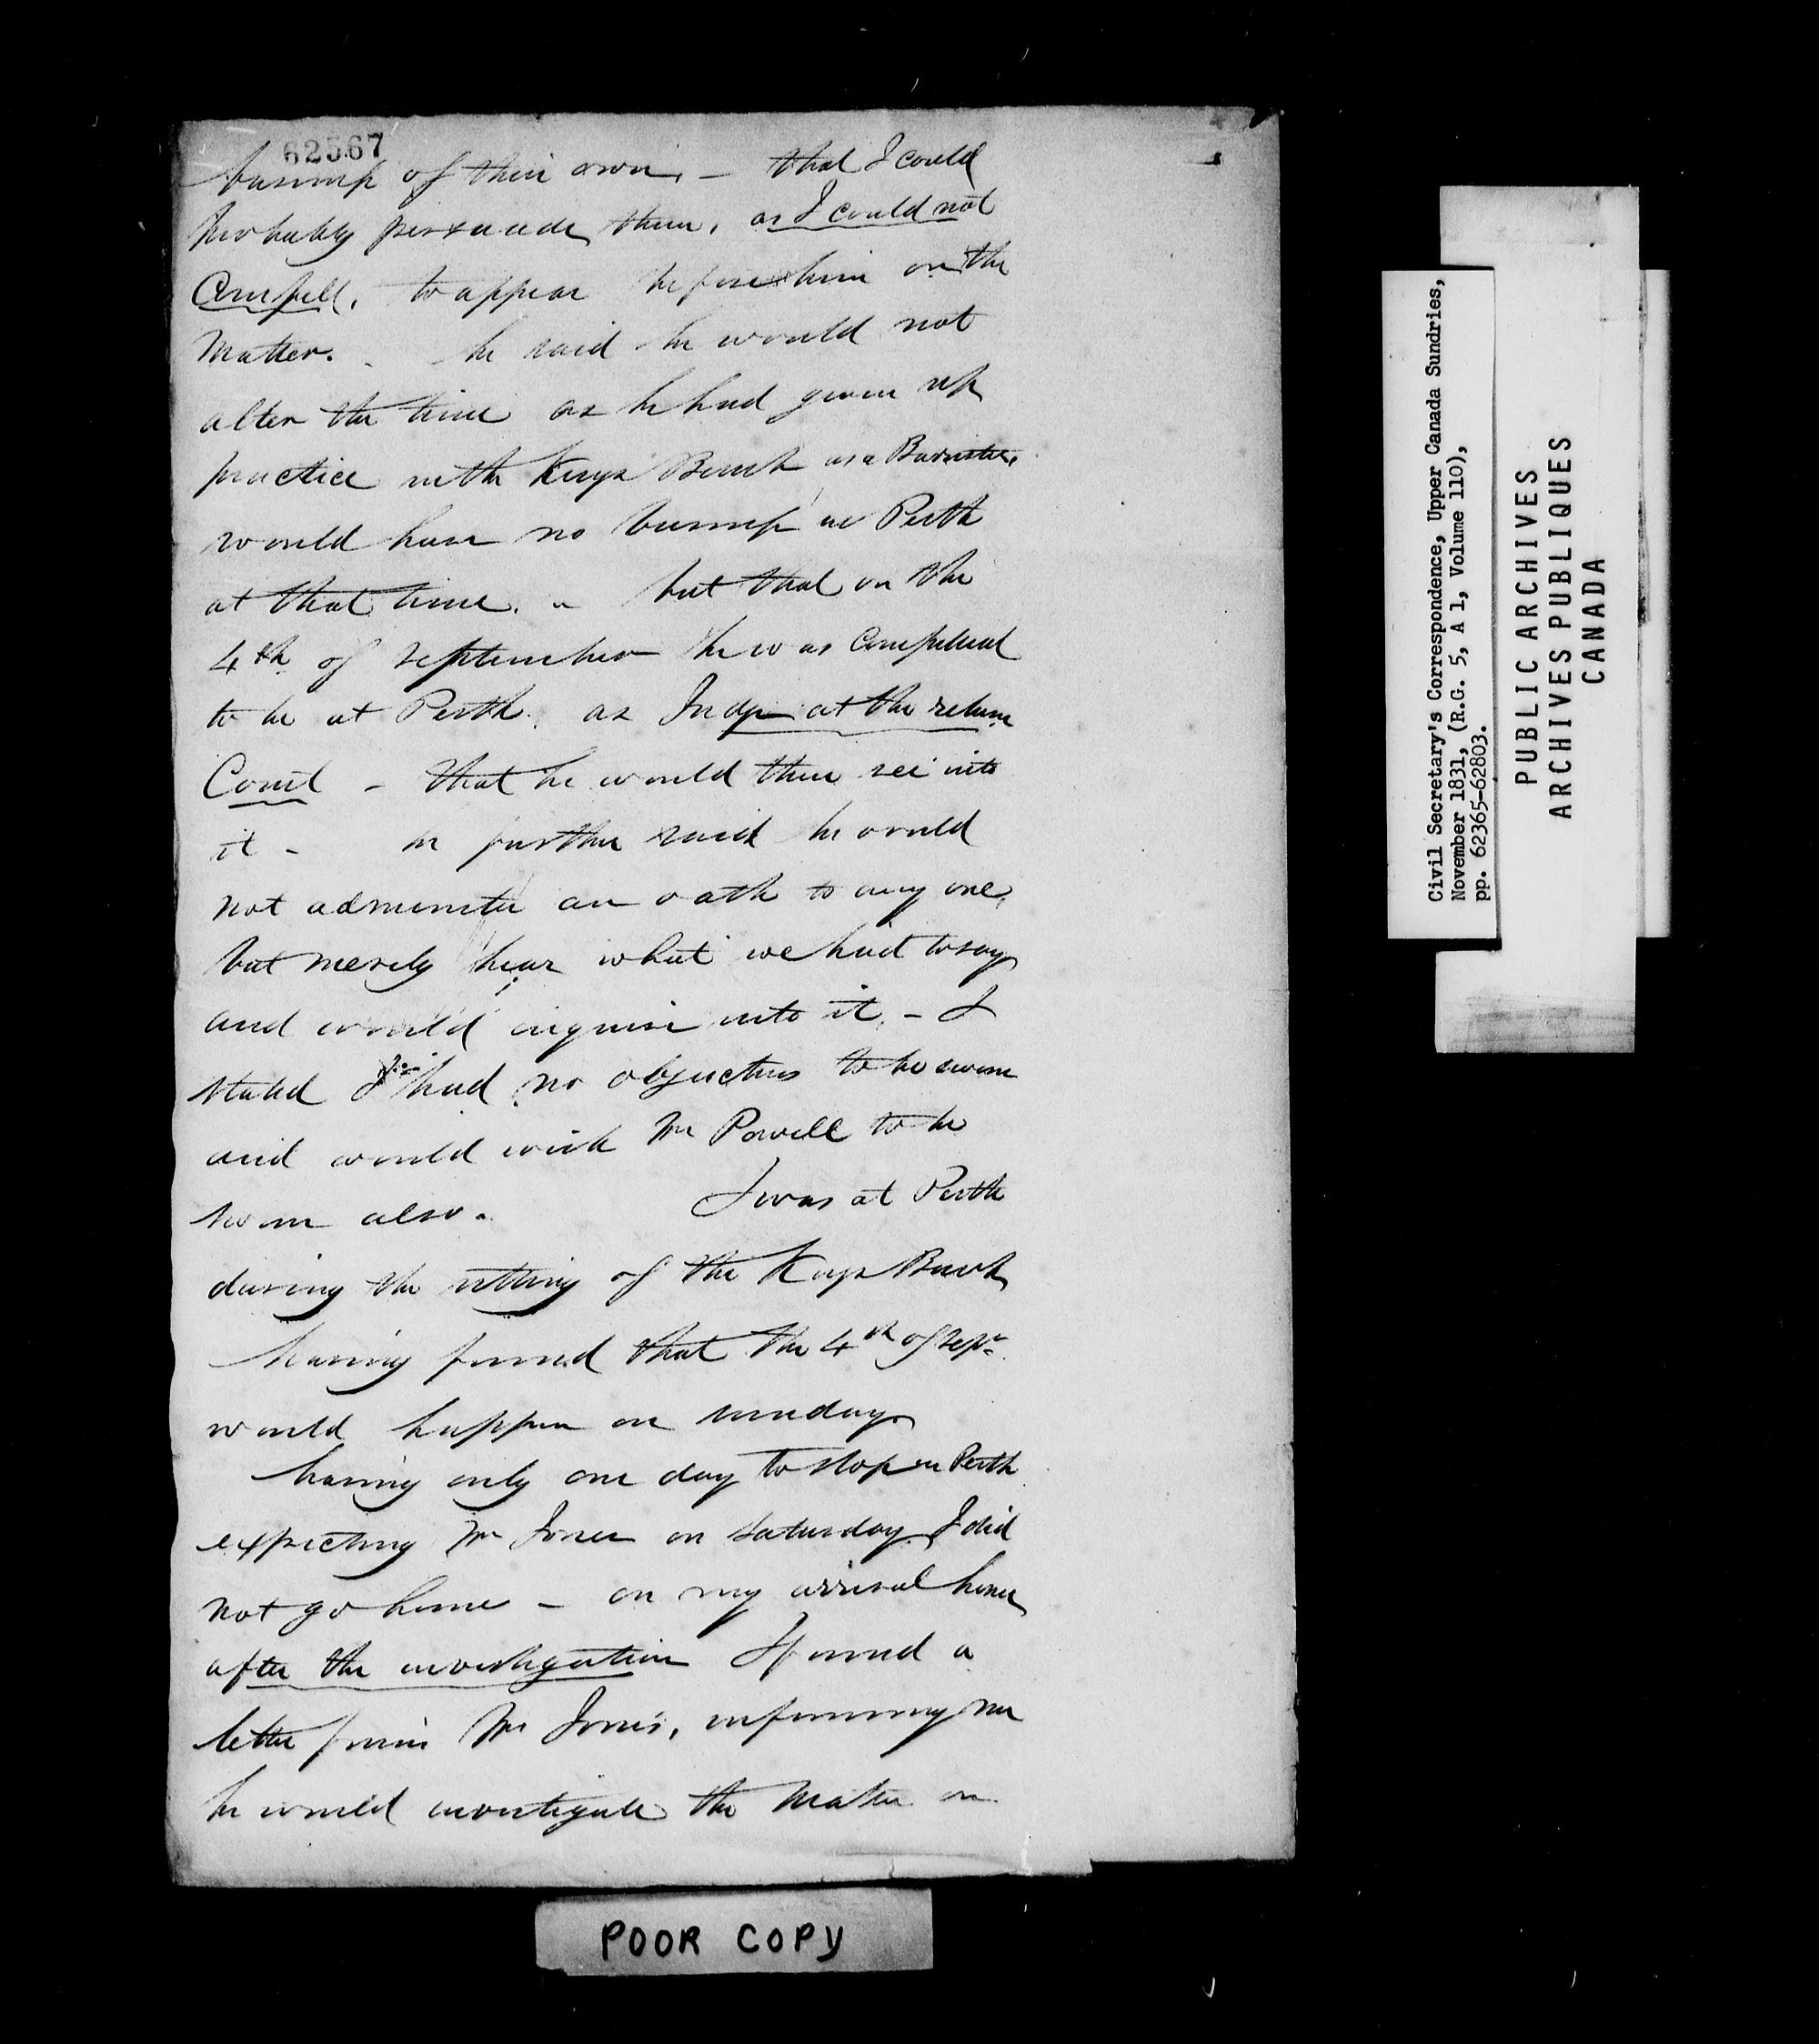 62567
business of their own, - that I could
probably persuade them, as I could not
Compell, to appear before him on the
Matter. - he said he would not
alter the time as he had given up
practice in the Kings Bench as a Barrister,
would have no business in Perth
at that time. - but that on the
4th of September he was compelled
to be at Perth, as Judge at the return
Court - that he would then see into
it - he further said he would
not administer an oath to any one,
but merely hear what we had to say
and would inquire into it, - I
stated I had no objections to be sworn
and would wish Mr Powell to be
sworn also. I was at Perth
during the sitting of the Kings Bench
having found that the 4th of Sepr
would happen on sunday
having only one day to stop in Perth
expecting Mr Jones on Saturday I did
not go home - on my arrival home
after the investigation I found a
letter from Mr Jones, informing me
he would investigate the Matter on
POOR COPY
Civil Secretary's Correspondence, Upper Canada Sundries,
November 1831, (R.G. 5, A 1, Volume 110),
pp. 62365-62803.
PUBLIC ARCHIVES
ARCHIVES PUBLIQUES
CANADA